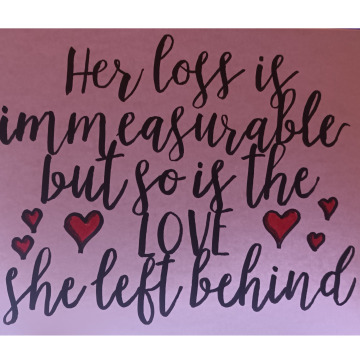 Her loss is
immeasurable
but so is the
LOVE
she left behind